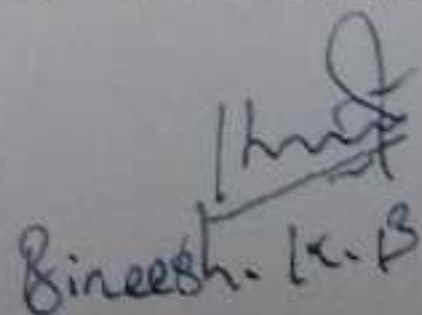 Bineesh. K. B